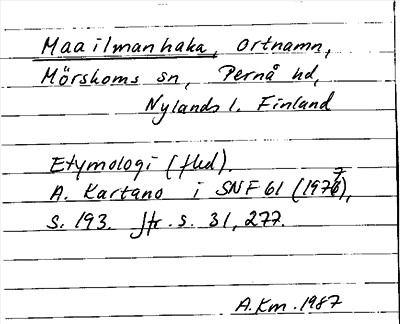 Maailmanhaka, ortnamn,
Mörskoms sn, Pernå hd,
Nylands l. Finland
Etymologi (fled).
A. Kartano i SNF 61 (1977),
s. 193. Jfr. s. 31, 277.
A.Km. 1987